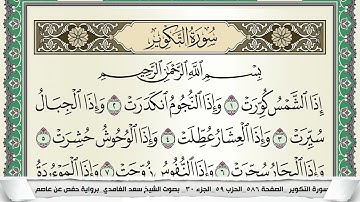 سُورَةُ التَّكْوِيرِ
بِسْمِ اللَّهِ الرَّحْمَٰنِ الرَّحِيمِ
إِذَا الشَّمْسُ كُوِّرَتْ ١ وَإِذَا النُّجُومُ انكَدَرَتْ ٢ وَإِذَا الْجِبَالُ
سُيِّرَتْ ٣ وَإِذَا الْعِشَارُ عُطِّلَتْ ٤ وَإِذَا الْوُحُوشُ حُشِرَتْ ٥
وَإِذَا الْبِحَارُ سُجِّرَتْ ٦ وَإِذَا النُّفُوسُ زُوِّجَتْ ٧ وَإِذَا الْمَوْءُودَةُ
سورة التكوير _ الصفحة ٥٨٦ _ الحزب ٥٩ _ الجزء ٣٠ _ بصوت الشيخ سعد الغامدي _ برواية حفص عن عاصم